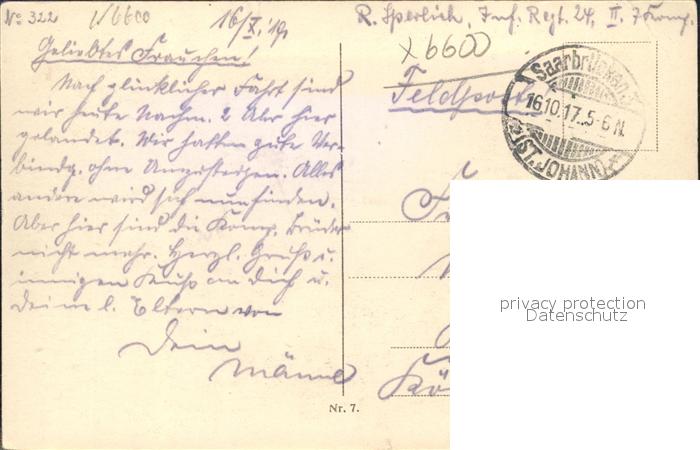 No 322 6600 16/X.17.
R. Sperlich, Inf. Regt. 24, II. 7 Komp.
x 6600
Geliebtes Frauchen!
Feldpost
Saarbrücken
16.10.17. 5-6 N.
(ST. JOHANN)
Nach glücklicher Fahrt sind
wir heute Nachm. 2 Uhr hier
gelandet. Wir hatten gute Ver-
bindg. ohne Umzusteigen. Alles
andere wird sich nun finden.
Aber hier sind die Komp. Brüder
nicht mehr. Herzl. Gruß u.
innigen Kuß an Dich u.
deine l. Eltern von
Dein
Männe
Kö
Nr. 7.
privacy protection
Datenschutz